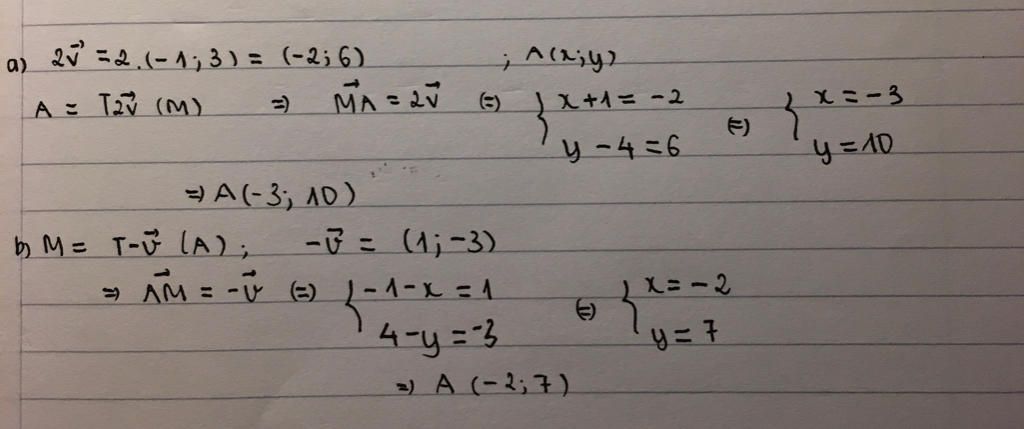 a) 2v⃗ = 2.(-1;3) = (-2;6) ; A(x;y)
A = T2v⃗ (M) => MA⃗ = 2v⃗ (=) { x+1 = -2 (=) { x = -3
y - 4 = 6 y = 10
=> A(-3; 10)
b) M = T-v⃗ (A); -v⃗ = (1;-3)
=> AM⃗ = -v⃗ (=) { -1-x = 1 (=) { x = -2
4-y = -3 y = 7
=> A (-2;7)